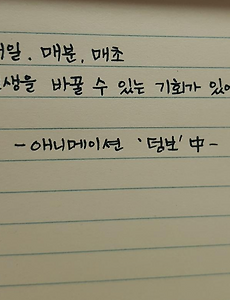 매일. 매분, 매초
인생을 바꿀 수 있는 기회가 있어
- 애니메이션 '덤보' 中 -